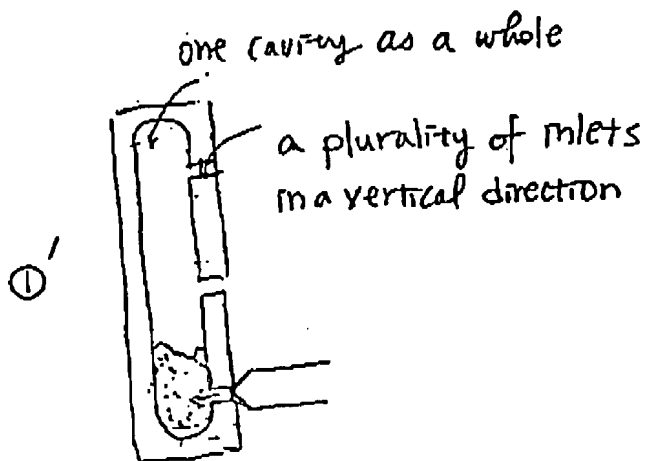 one cavity as a whole
a plurality of inlets
in a vertical direction
①'